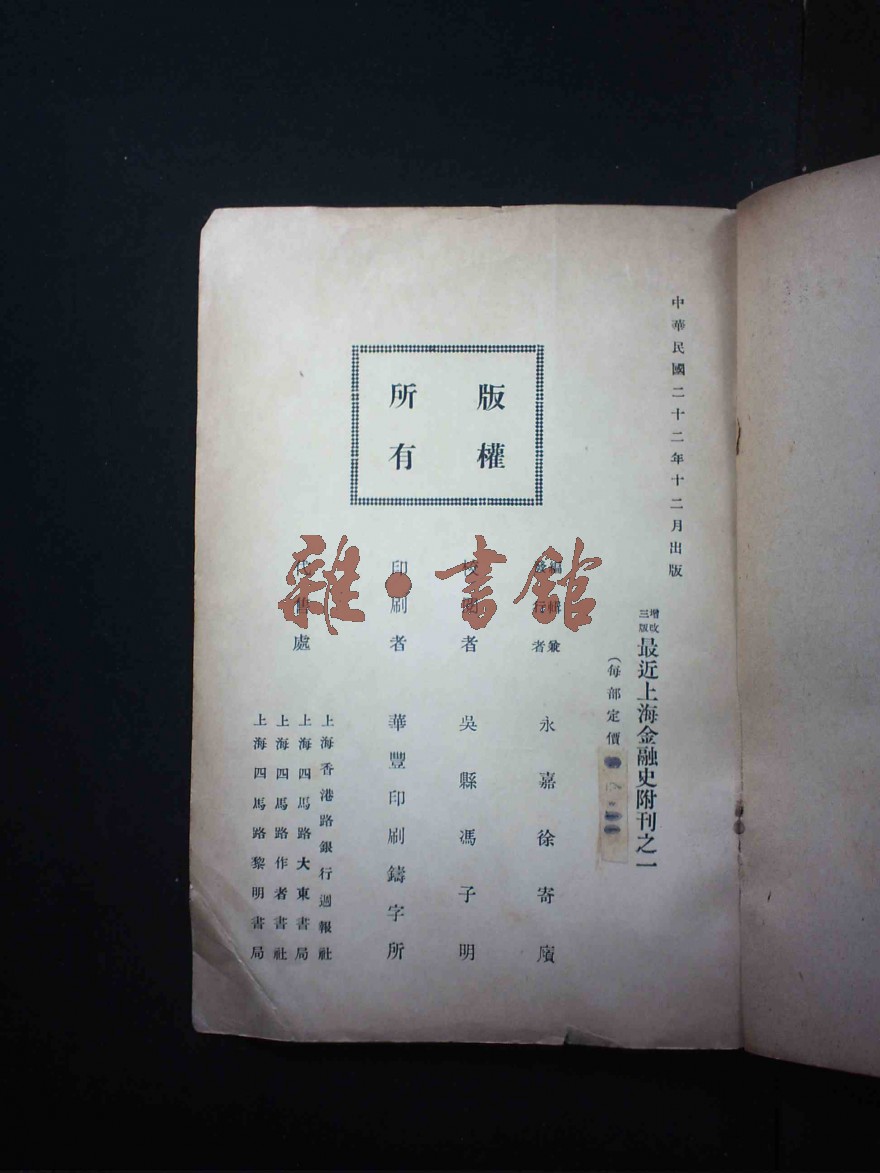 中華民國二十二年十二月出版
增改三版 最近上海金融史附刊之一
(每部定價
版權
所有
編輯兼
發行者
永嘉徐寄廎
校勘者 吳縣馮子明
印刷者 華豐印刷鑄字所
代售處
上海香港路銀行週報社
上海四馬路大東書局
上海四馬路作者書社
上海四馬路黎明書局
雜·書館